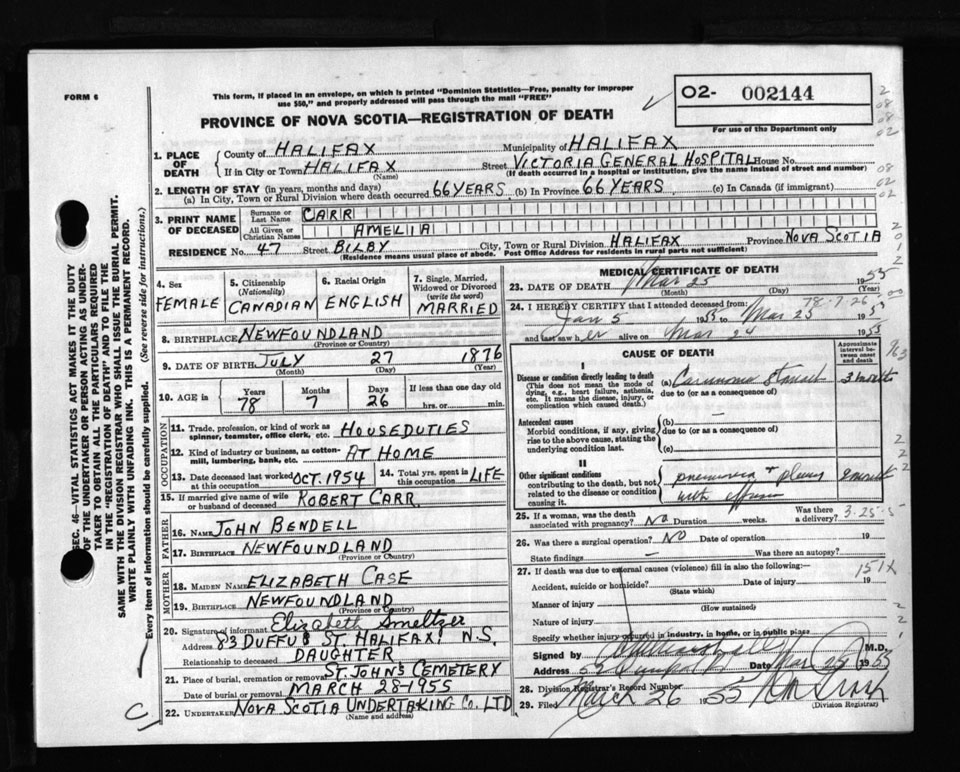 FORM 6
This form, if placed in an envelope, on which is printed "Dominion Statistics—Free, penalty for improper
use $50," and properly addressed will pass through the mail "FREE"
O2- 002144
For use of the Department only
PROVINCE OF NOVA SCOTIA—REGISTRATION OF DEATH
1. PLACE OF DEATH County of HALIFAX Municipality of HALIFAX
If in City or Town HALIFAX (Name) Street VICTORIA GENERAL HOSPITAL House No.
(If death occurred in a hospital or institution, give name instead of street and number)
2. LENGTH OF STAY (in years, months and days)
(a) In City, Town or Rural Division where death occurred 66 YEARS (b) In Province 66 YEARS (c) In Canada (if immigrant)
3. PRINT NAME OF DECEASED Surname or Last Name CARR
All Given or Christian Names AMELIA
RESIDENCE No. 47 Street BILBY City, Town or Rural Division HALIFAX Province NOVA SCOTIA
(Residence means usual place of abode. Post Office Address for residents in rural parts not sufficient)
SEC. 46—VITAL STATISTICS ACT MAKES IT THE DUTY
OF THE UNDERTAKER OR PERSON ACTING AS UNDER-
TAKER TO OBTAIN ALL THE PARTICULARS REQUIRED
IN THE "REGISTRATION OF DEATH" AND TO FILE THE
SAME WITH THE DIVISION REGISTRAR WHO SHALL ISSUE THE BURIAL PERMIT.
WRITE PLAINLY WITH UNFADING INK. THIS IS A PERMANENT RECORD.
Every item of Information should be carefully supplied. (See reverse side for instructions.)
4. Sex FEMALE
5. Citizenship (Nationality) CANADIAN
6. Racial Origin ENGLISH
7. Single, Married, Widowed or Divorced (write the word) MARRIED
8. BIRTHPLACE NEWFOUNDLAND
(Province or Country)
9. DATE OF BIRTH JULY 27 1876
(Month) (Day) (Year)
10. AGE in Years 78 Months 7 Days 26 If less than one day old hrs. or min.
OCCUPATION
11. Trade, profession, or kind of work as spinner, teamster, office clerk, etc. HOUSEDUTIES
12. Kind of industry or business, as cotton-mill, lumbering, bank, etc. AT HOME
13. Date deceased last worked at this occupation OCT. 1954
14. Total yrs. spent in this occupation LIFE
15. If married give name of wife or husband of deceased ROBERT CARR
FATHER
16. NAME JOHN BENDELL
17. BIRTHPLACE NEWFOUNDLAND
(Province or Country)
MOTHER
18. MAIDEN NAME ELIZABETH CASE
19. BIRTHPLACE NEWFOUNDLAND
(Province or Country)
20. Signature of informant Elizabeth Smeltzer
Address 83 DUFFUS ST. HALIFAX N.S.
Relationship to deceased DAUGHTER
21. Place of burial, cremation or removal ST. JOHN'S CEMETERY
Date of burial or removal MARCH 28-1955
22. UNDERTAKER NOVA SCOTIA UNDERTAKING CO. LTD
(Name and address)
C
MEDICAL CERTIFICATE OF DEATH
23. DATE OF DEATH Mar 25 1955
(Month) (Day) (Year)
78-7-26
24. I HEREBY CERTIFY that I attended deceased from:
Jan 5 1955 to Mar 25 1955
and last saw her alive on Mar 24 1955
CAUSE OF DEATH
Approximate interval between onset and death
I
Disease or condition directly leading to death (a) Carcinoma Stomach 3 months
(This does not mean the mode of dying, e.g., heart failure, asthenia, etc. It means the disease, injury, or complication which caused death.)
due to (or as a consequence of)
Antecedent causes (b) —
Morbid conditions, if any, giving rise to the above cause, stating the underlying condition last.
due to (or as a consequence of)
(c)
II
Other significant conditions contributing to the death, but not related to the disease or condition causing it.
pneumonia + pleurisy with effusion
25. If a woman, was the death associated with pregnancy? No Duration weeks. Was there a delivery?
3-25-5
26. Was there a surgical operation? NO Date of operation 19
State findings — Was there an autopsy?
27. If death was due to external causes (violence) fill in also the following:—
151X
Accident, suicide or homicide? Date of injury 19
(State which)
Manner of injury
(How sustained)
Nature of injury
Specify whether injury occurred in industry, in home, or in public place
Signed by M.D.
Address Date Mar 25 1955
28. Division Registrar's Record Number
29. Filed March 26 1955
(Division Registrar)